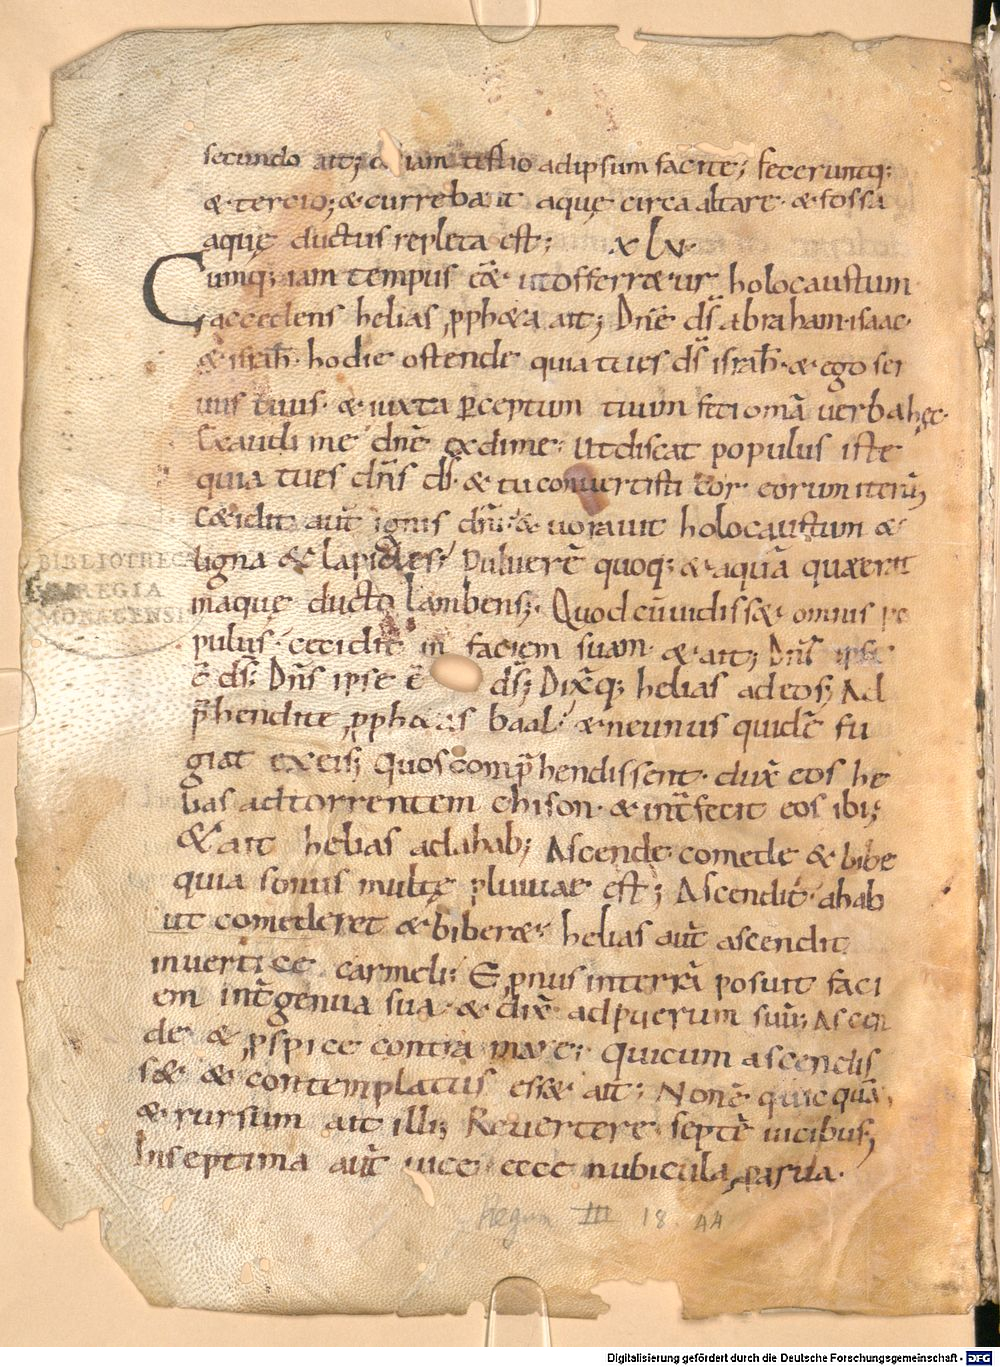 secundo ait; etiam tertio ad ipsum facite; feceruntq:
& tercio; & currebant aquę circa altare & fossa
aquę ductus repleta est; xlv.
Cumq; iam tempus eẽ ut offerr&ur holocaustum
accedens helias ꝓph&a ait; Dñe ds̃ abraham· isaac·
& israhl̄· hodie ostende quia tu es ds̃ israhl̄· & ego ser
uus tuus· & iuxta p̄ceptum tuum feci omā uerba hęc·
Exaudi me dñe exdi me· Ut discat populus iste
quia tu es dñs ds̃· & tu conuertisti cor eorum iterū;
Cecidit aut̄ ignis dñi· & uorauit holocaustum &
ligna & lapides; Puluerē quoq; & aquā quę erat
in aquę ducto lambens; Quod cū uidiss& omnis po
pulus· cecidit in faciem suam· & ait; Dñs ipse
ē ds̃; Dñs ipse ē ds̃; Dixitq; helias ad eos; Ad
p̄hendite ꝓph&as baal· & ne unus quidē fu
giat ex eis; Quos comp̄hendissent· dux̄ eos he
lias ad torrentem chison· & int̄fecit eos ibi;
& ait helias ad ahab; Ascende comede & bibe
quia sonus multę pluuiae est; Ascendit ahab
ut comederet & biber&· helias aut̄ ascendit
in uertice carmeli; & pnus in terrā posuit faci
em int̄ genua sua· & dix̄ ad puerum suū; Ascen
de & ꝓspice contra mare; Qui cum ascendis
s& & contemplatus ess& ait; Non ē quicquā;
& rursum ait illi; Reuertere septē uicibus;
In septima aut̄ uice ecce nubicula parua·
Regum III 18. 44
BIBLIOTHECA
REGIA
MONACENSIS
Digitalisierung gefördert durch die Deutsche Forschungsgemeinschaft - DFG